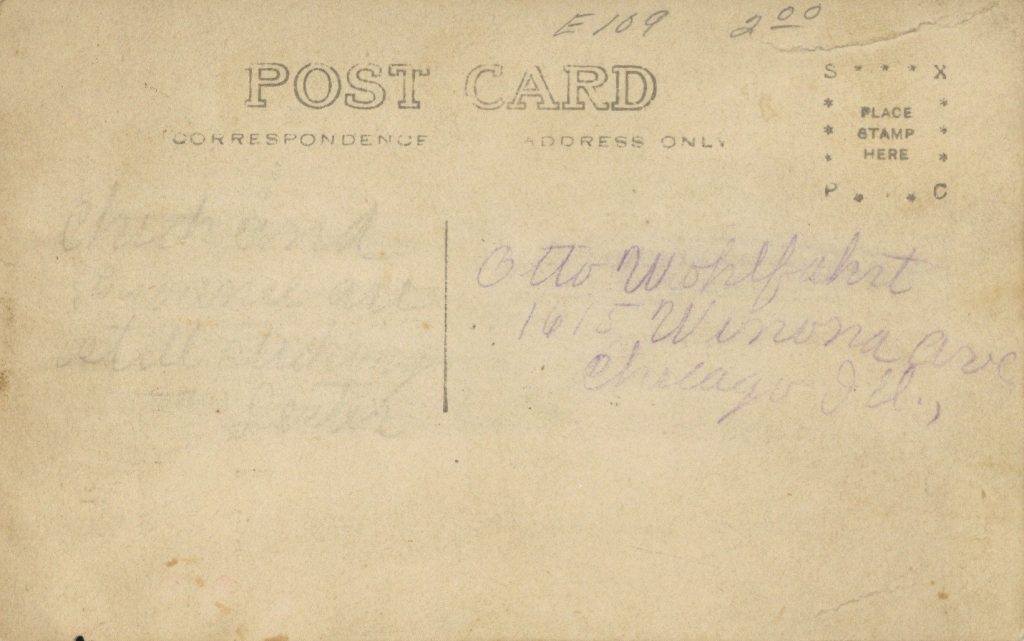 E109 2.00
POST CARD
S X
CORRESPONDENCE ADDRESS ONLY
PLACE
STAMP
HERE
P C
and
are
still
Otto Wohlfahrt
1615 Winona Ave
Chicago Ill.,